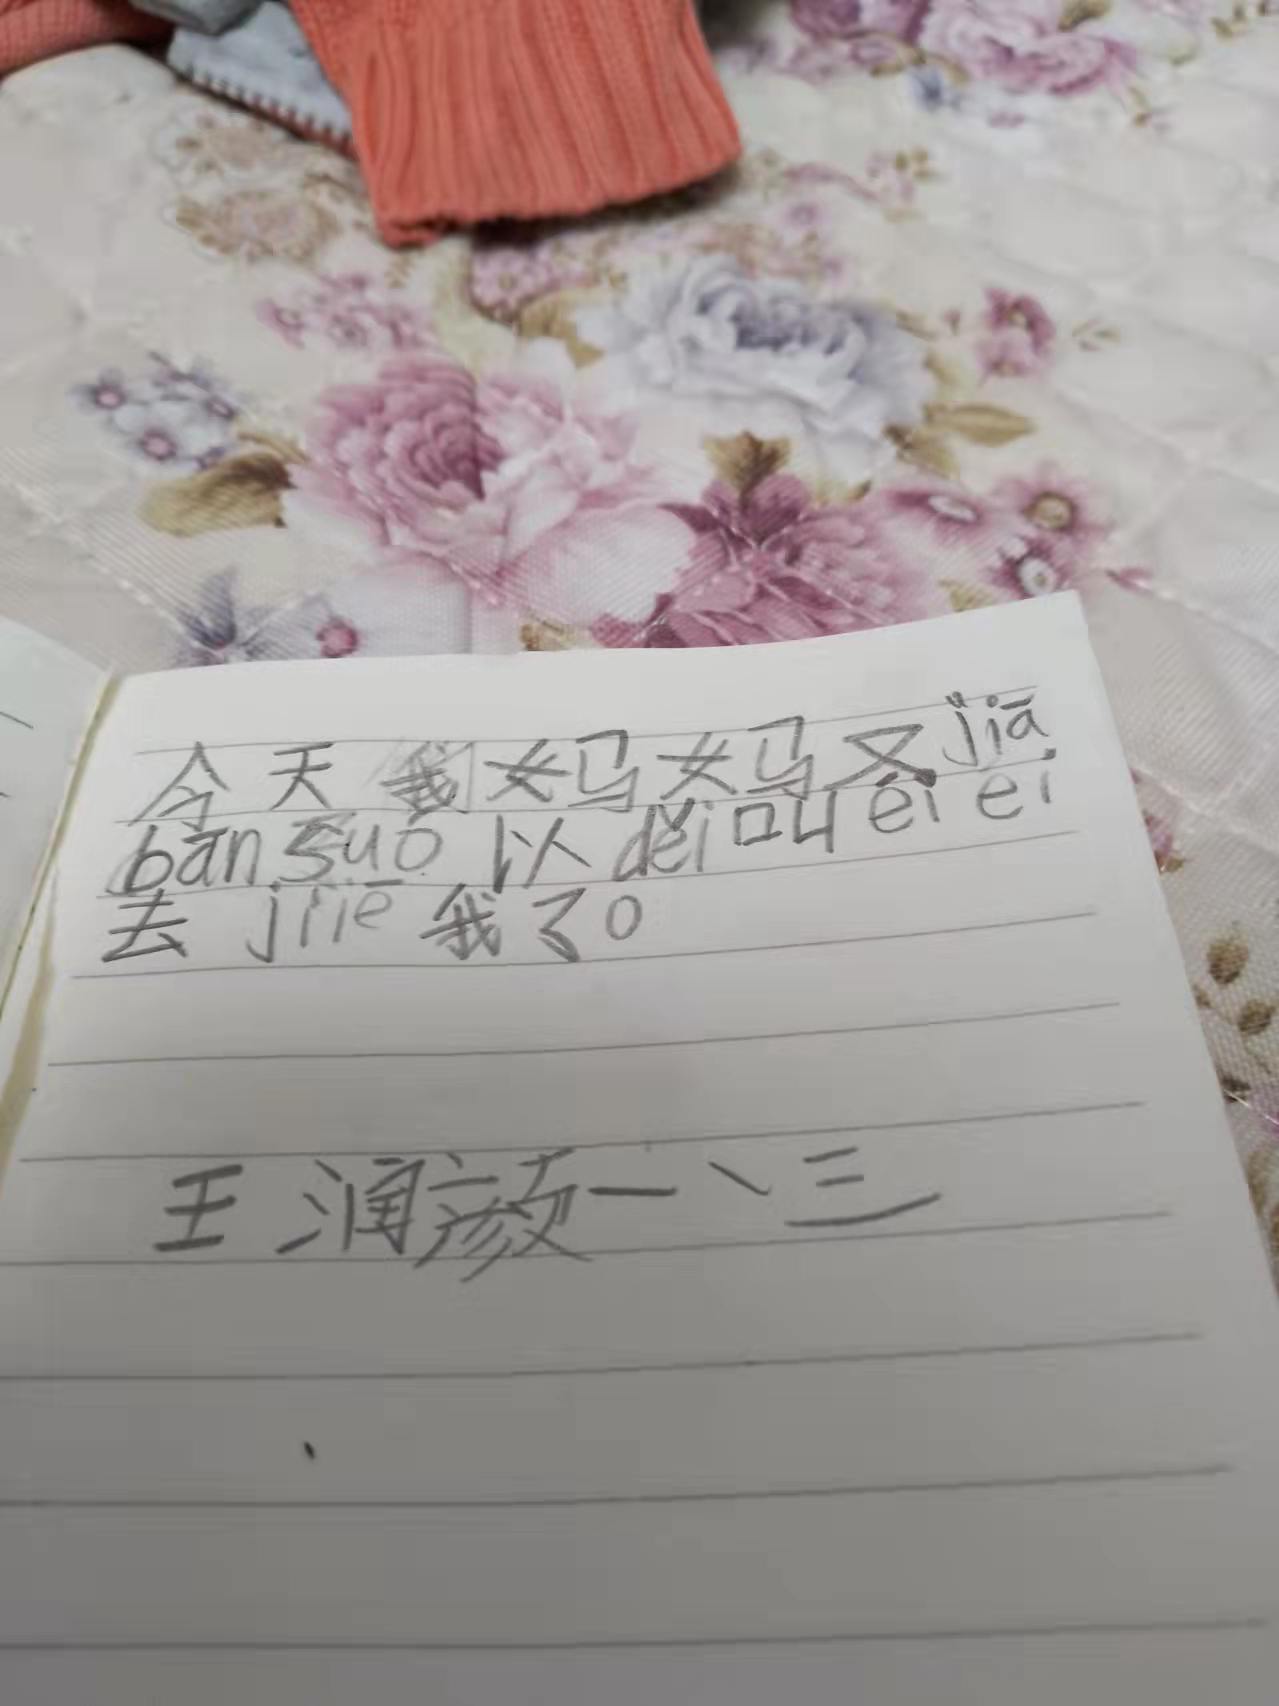 今天我妈妈又jiā
bān suǒ以děi叫éi ei
去jiē我了。
王润颜一、三